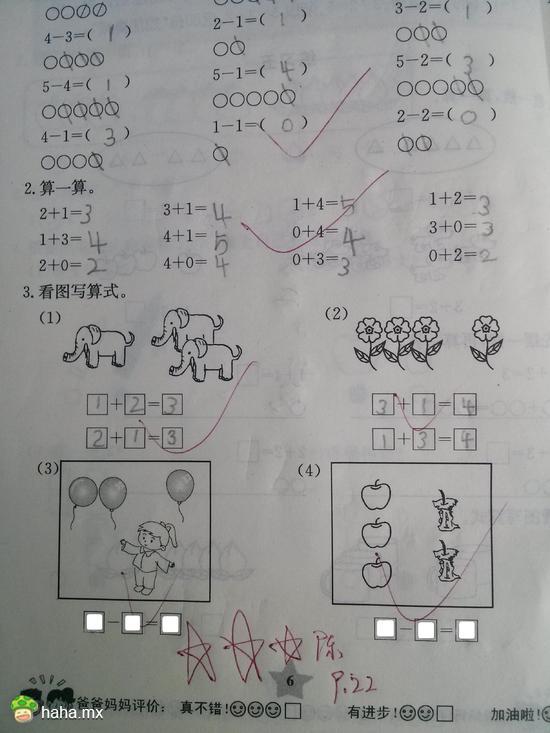 3-2=( 1 )
4-3=( 1 )
2-1=( 1 )
5-2=( 3 )
5-4=( 1 )
5-1=( 4 )
2-2=( 0 )
4-1=( 3 )
1-1=( 0 )
2.算一算。
2+1=3
3+1=4
1+4=5
1+2=3
1+3=4
4+1=5
0+4=4
3+0=3
2+0=2
4+0=4
0+3=3
0+2=2
3.看图写算式。
(1)
(2)
1+2=3
3+1=4
2+1=3
1+3=4
(3)
(4)
-=
-=
陈
P.22
6
爸爸妈妈评价: 真不错! 有进步! 加油啦!
haha.mx